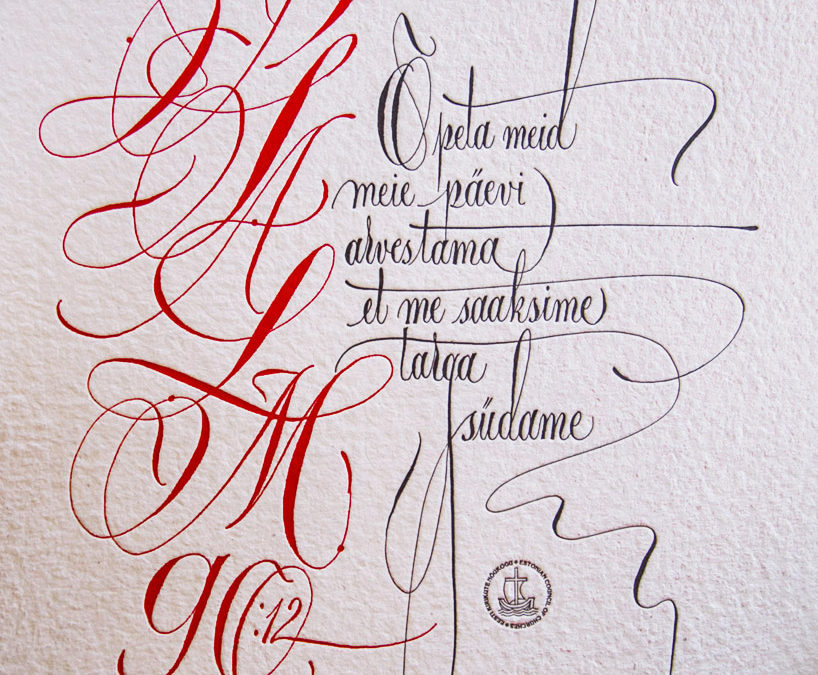 PSALM
90:12
Õpeta meid
meie päevi
arvestama
et me saaksime
targa
südame
EESTI KIRIKUTE NÕUKOGU • ESTONIAN COUNCIL OF CHURCHES •